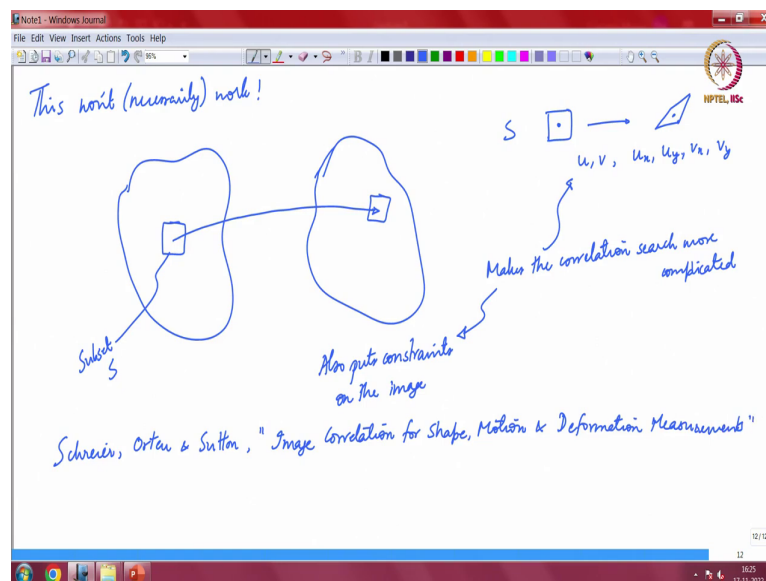 Note1 - Windows Journal
File Edit View Insert Actions Tools Help
96%
B I
NPTEL, IISc
This won't (necessarily) work!
S
u, v, u_x, u_y, v_x, v_y
Makes the correlation search more
complicated
Subset
S
Also puts constraints
on the image
Schreier, Orteu & Sutton, "Image Correlation for Shape, Motion & Deformation Measurements"
12/12
12
16:25
17-11-2022